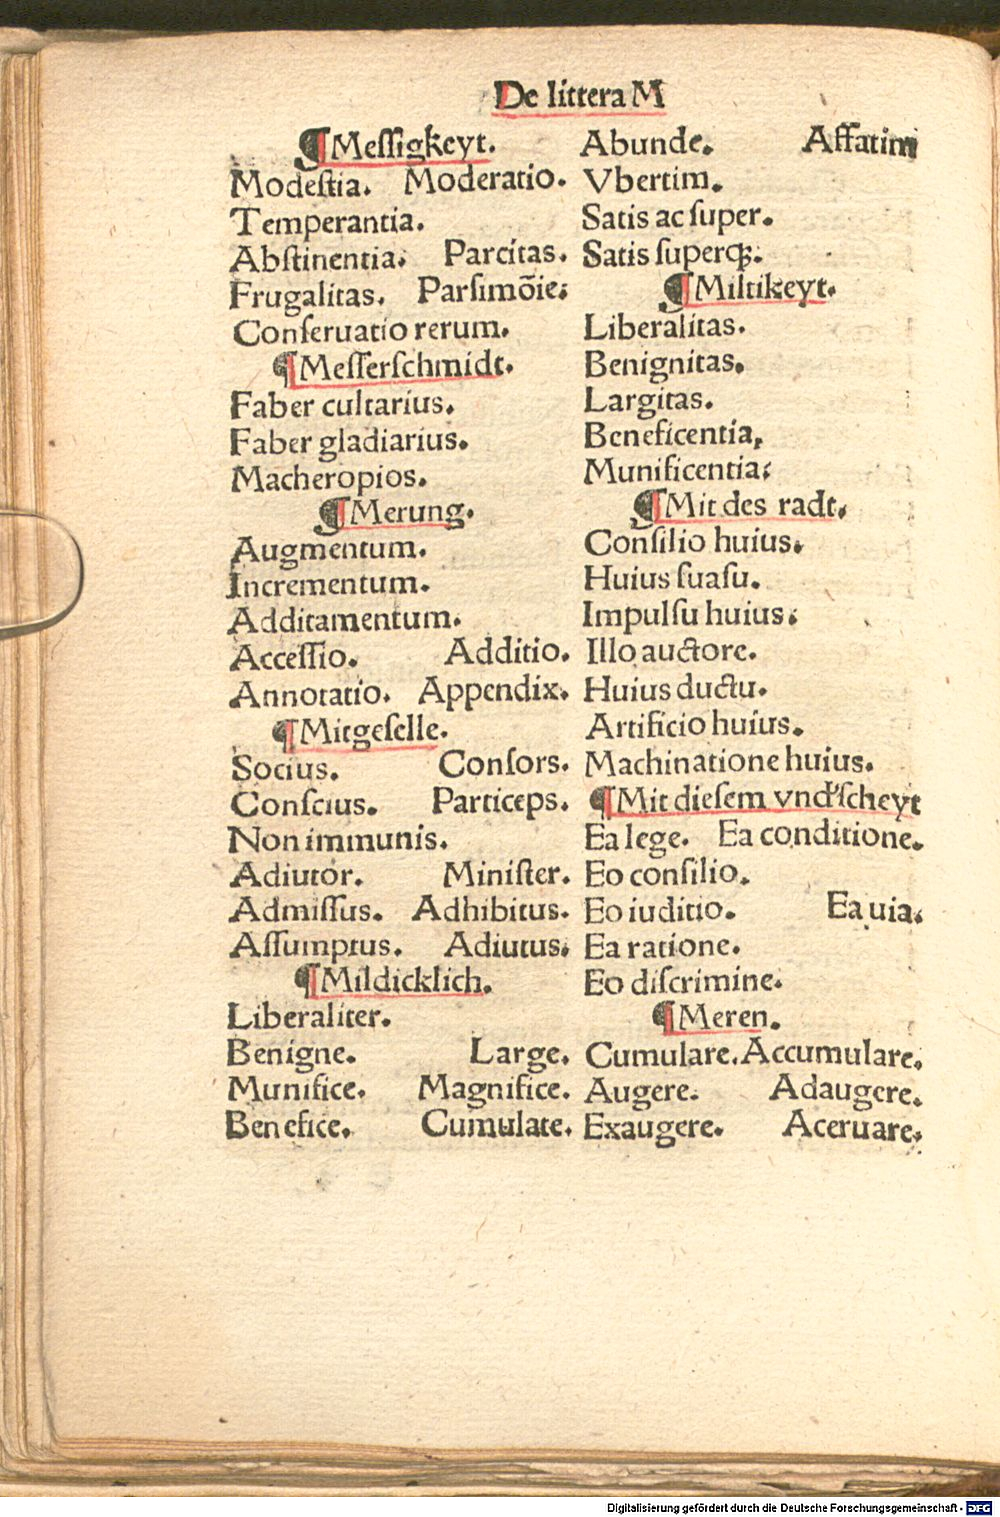 De littera M
¶Meſſigkeyt.
Modeſtia. Moderatio.
Temperantia.
Abſtinentia. Parcitas.
Frugalitas. Parſimõie.
Conſeruatio rerum.
¶Meſſerſchmidt.
Faber cultarius.
Faber gladiarius.
Macheropios.
¶Merung.
Augmentum.
Incrementum.
Additamentum.
Acceſſio. Additio.
Annotatio. Appendix.
¶Mitgeſelle.
Socius. Conſors.
Conſcius. Particeps.
Non immunis.
Adiutor. Miniſter.
Admiſſus. Adhibitus.
Aſſumptus. Adiutus.
¶Mildicklich.
Liberaliter.
Benigne. Large.
Munifice. Magnifice.
Benefice. Cumulate.
Abunde. Affatim
Vbertim.
Satis ac ſuper.
Satis ſuperqꝫ.
¶Miltikeyt.
Liberalitas.
Benignitas.
Largitas.
Beneficentia,
Munificentia.
¶Mit des radt.
Conſilio huius.
Huius ſuaſu.
Impulſu huius.
Illo auctore.
Huius ductu.
Artificio huius.
Machinatione huius.
¶Mit dieſem vnd'ſcheyt
Ea lege. Ea conditione.
Eo conſilio.
Eo iuditio. Ea uia.
Ea ratione.
Eo diſcrimine.
¶Meren.
Cumulare. Accumulare.
Augere. Adaugere.
Exaugere. Aceruare.
Digitalisierung gefördert durch die Deutsche Forschungsgemeinschaft - DFG